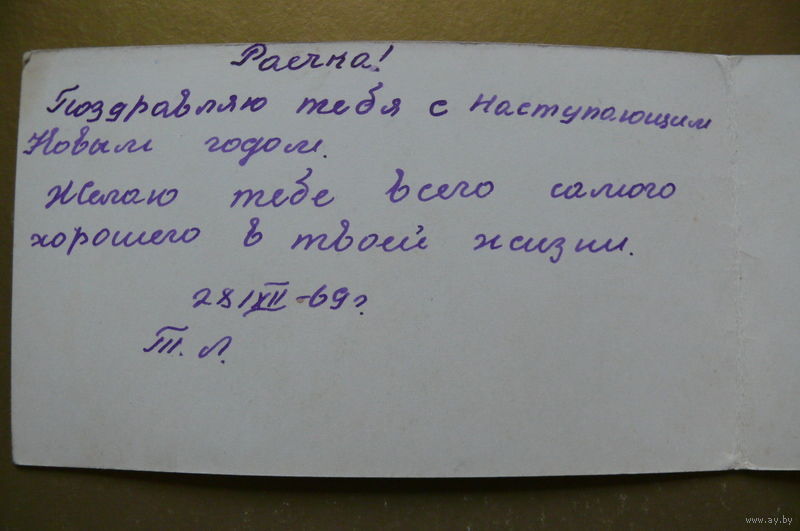 Раечка!
Поздравляю тебя с наступающим
Новым годом.
Желаю тебе всего самого
хорошего в твоей жизни.
28/XII-69г.
Т. Л.
www.ay.by